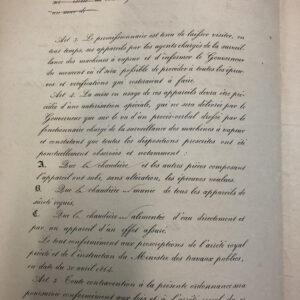 Art 3. Le permissionnaire est tenu de laisser visiter, en
tous temps, ses appareils par les agents chargés de la surveil-
lance des machines à vapeur et d'informer le Gouverneur
du moment où il sera possible de procéder à toutes les épreu-
ves et vérifications qui resteraient à faire.
Art 4. La mise en usage de ces appareils devra être pré-
cédée d'une autorisation spéciale, qui ne sera délivrée par le
Gouverneur que sur le vu d'un procès-verbal dressé par le
fonctionnaire chargé de la surveillance des machines à vapeur
et constatant que toutes les dispositions prescrites ont été
ponctuellement observées et notamment :
A. Que la chaudière et les autres pièces composant
l'appareil ont subi, sans altération, les épreuves voulues.
B. Que la chaudière munie de tous les appareils de
sûreté requis.
C. Que la chaudière alimentée d'eau directement et
par un appareil d'un effet assuré.
Le tout conformément aux prescriptions de l'arrêté royal
précité et de l'instruction du Ministre des travaux publics,
en date du 30 avril 1864.
Art 5. Toute contravention à la présente ordonnance sera
poursuivie conformément aux lois et à